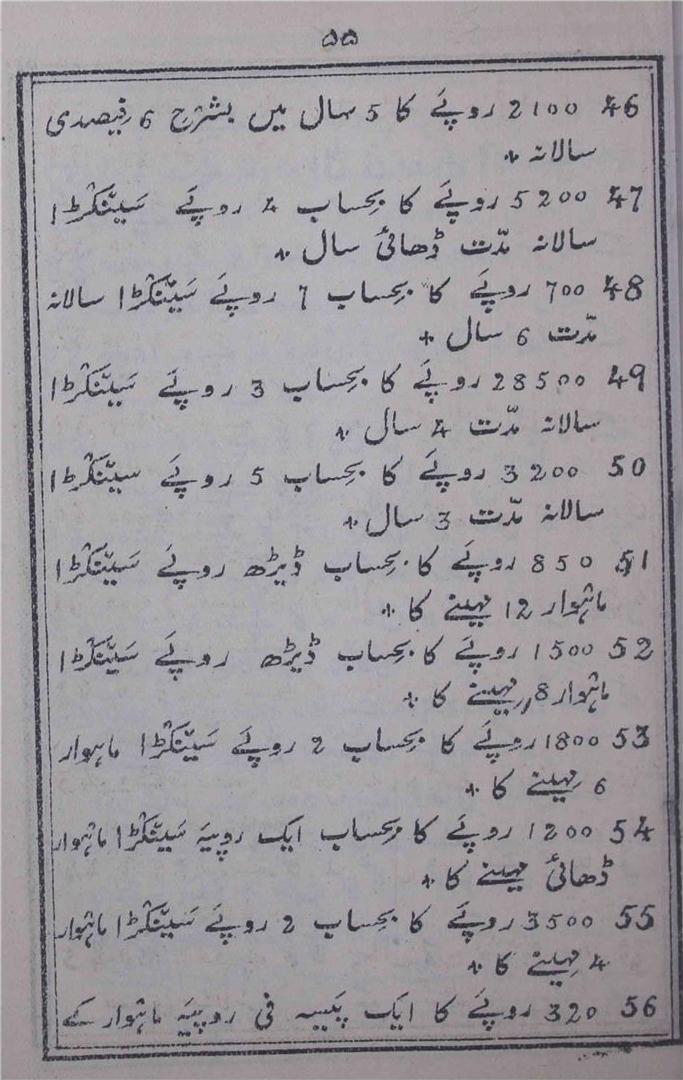 ۵۵
46 2100 روپَے کا 5 سال میں بشرحِ 6 فیصدی
سالانہ +
47 5200 روپَے کا بحِساب 4 روپَے سَینّکڑا
سالانہ مدّت ڈھائی سال +
48 700 روپَے کا بحِساب 7 روپَے سَینّکڑا سالانہ
مدّت 6 سال +
49 28500 روپَے کا بحِساب 3 روپَے سَینّکڑا
سالانہ مدّت 4 سال +
50 3200 روپَے کا بحِساب 5 روپَے سَینّکڑا
سالانہ مدّت 3 سال +
51 850 روپَے کا بحِساب ڈیڑھ روپَے سَینّکڑا
ماہوار 12 مہینے کا +
52 1500 روپَے کا بحِساب ڈیڑھ روپَے سَینّکڑا
ماہوار 8 مہینے کا +
53 1800 روپَے کا بحِساب 2 روپَے سَینّکڑا ماہوار
6 مہینے کا +
54 1200 روپَے کا بحِساب ایک روپیَہ سَینّکڑا ماہوار
ڈھائی مہینے کا +
55 3500 روپَے کا بحِساب 2 روپَے سَینّکڑا ماہوار
4 مہینے کا +
56 320 روپَے کا ایک پَیسہ فی روپیَہ ماہوار کے